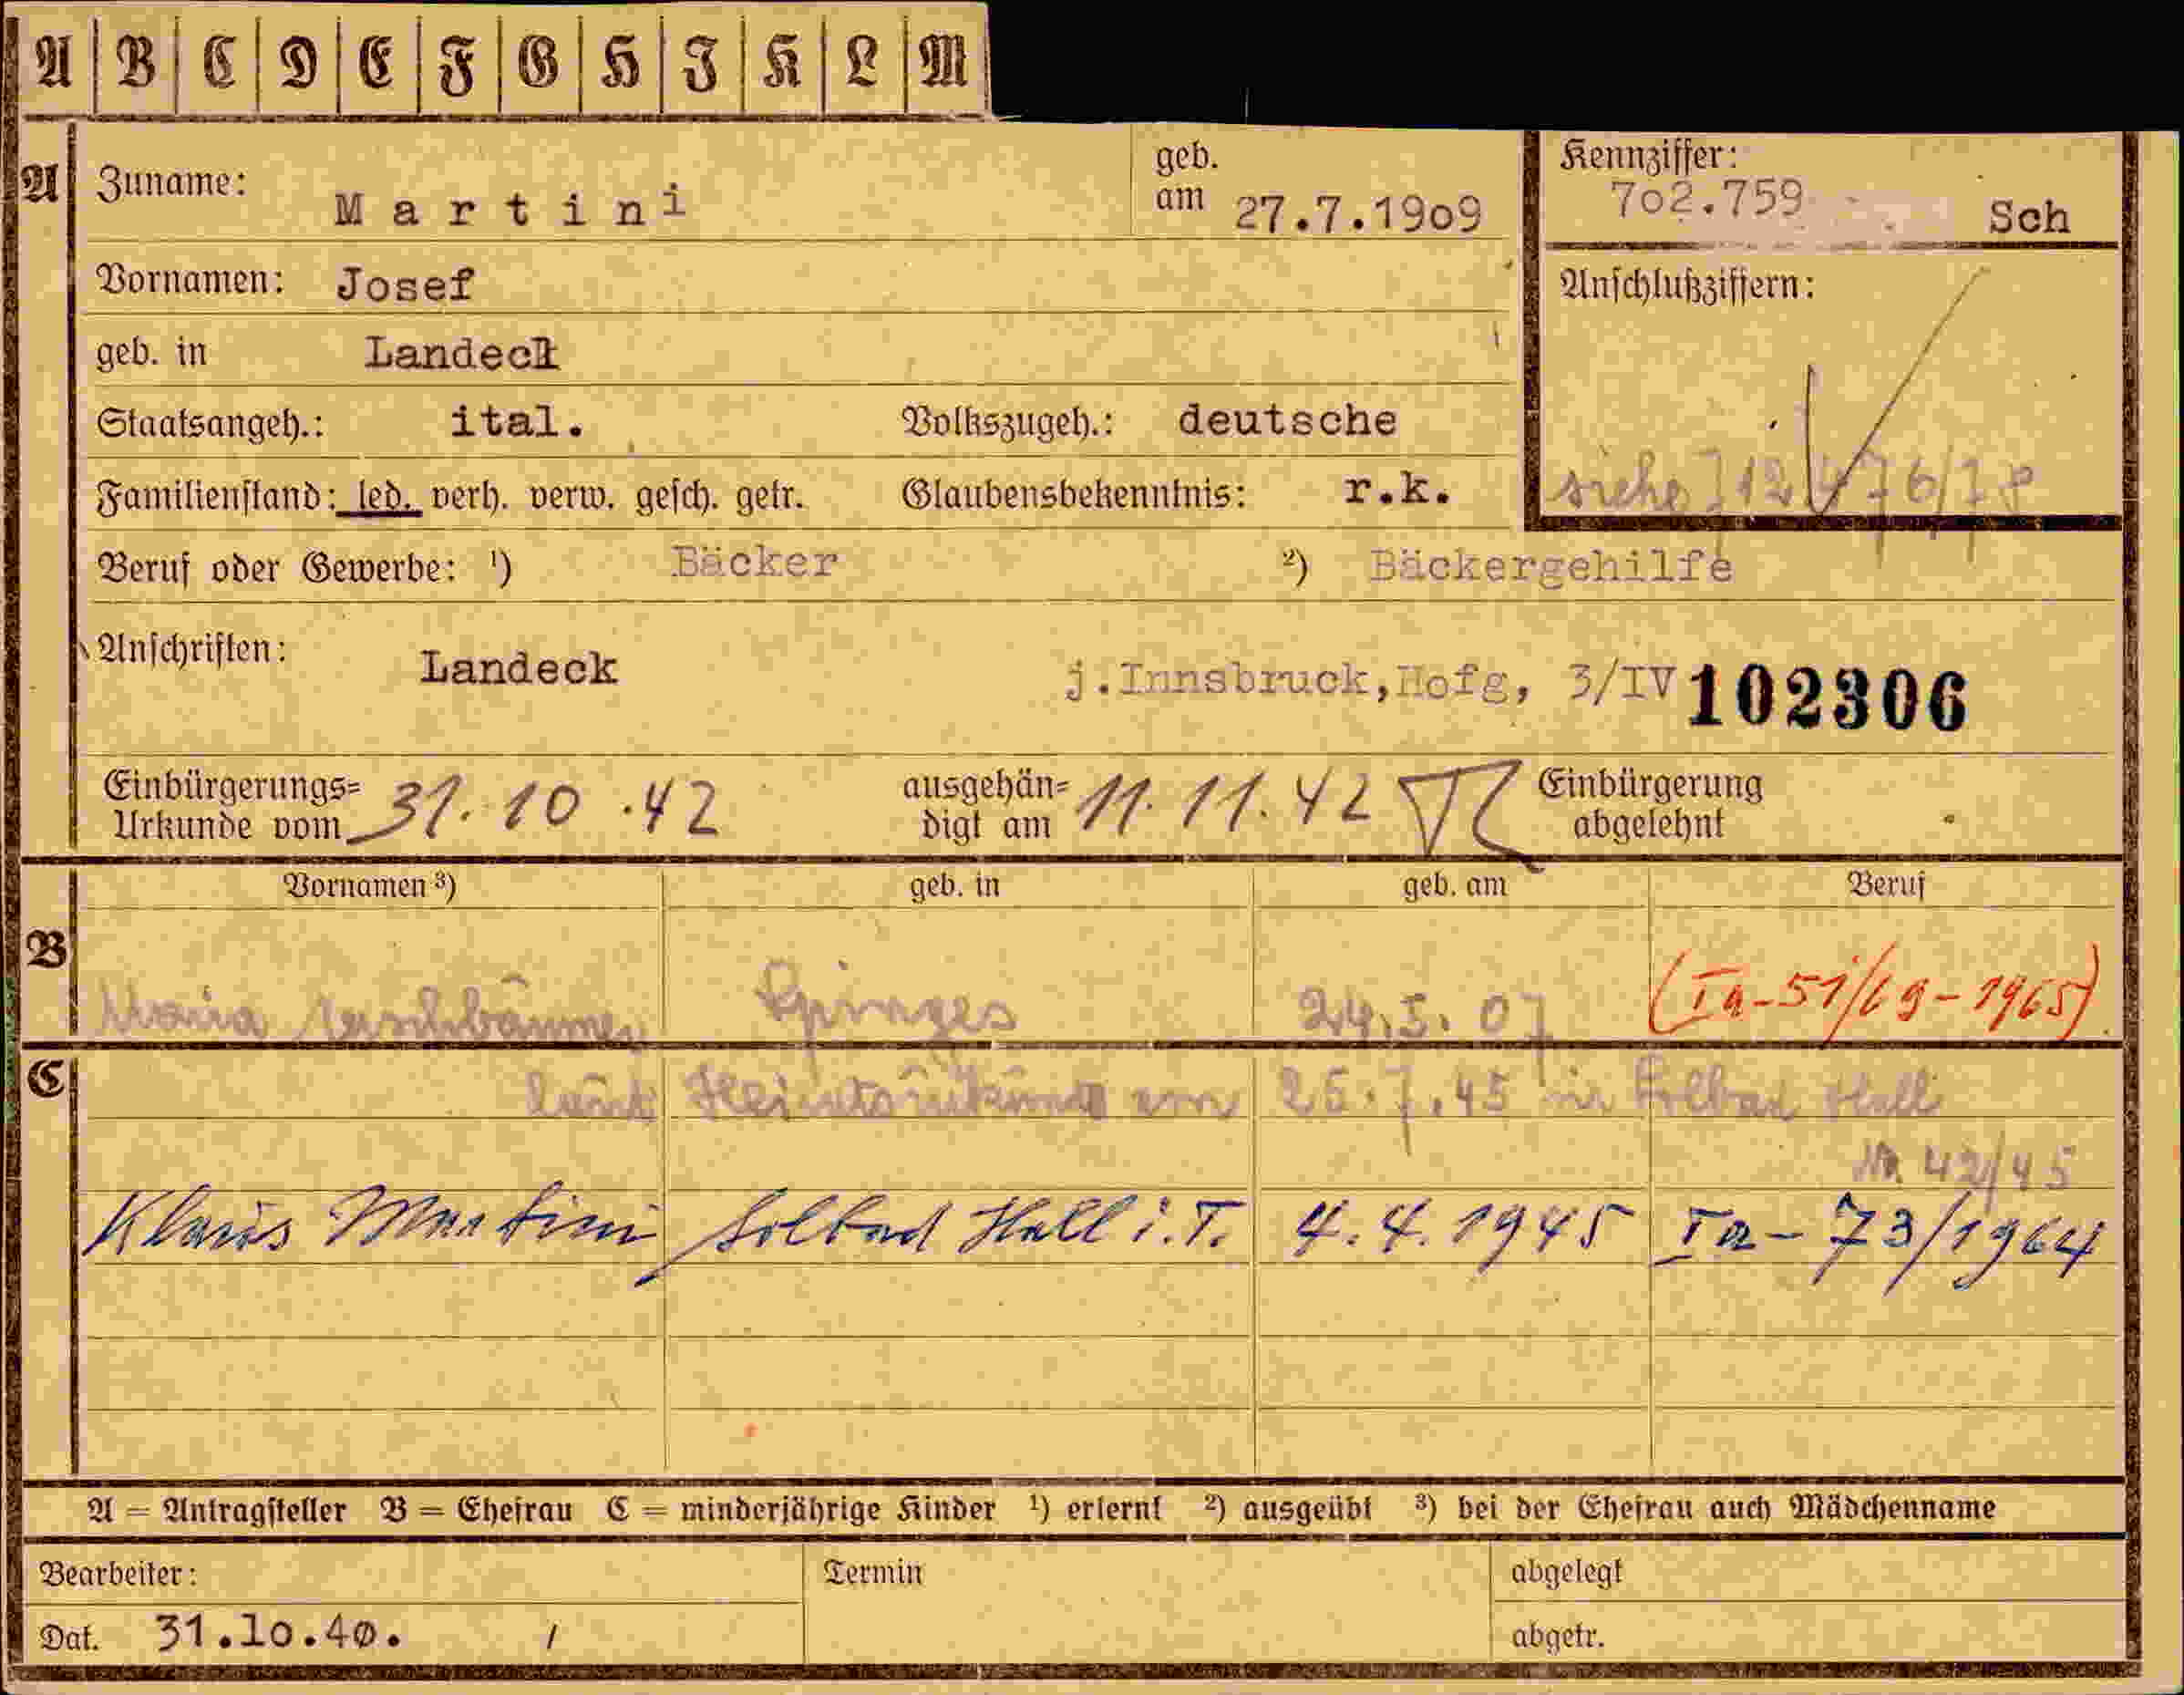 A B C D E F G H I K L M
A Zuname: Martini geb. am 27.7.1909
Kennziffer: 702.759 Sch
Vornamen: Josef
Anschlußziffern:
geb. in Landeck
Staatsangeh.: ital. Volkszugeh.: deutsche
Familienstand: led. verh. verw. gesch. getr. Glaubensbekenntnis: r.k.
siehe
Beruf oder Gewerbe: ¹) Bäcker ²) Bäckergehilfe
Anschriften: Landeck j.Innsbruck,Hofg, 3/IV 102306
Einbürgerungs=Urkunde vom 31.10.42 ausgehän=digt am 11.11.42 Einbürgerung abgelehnt
Vornamen ³) geb. in geb. am Beruf
B Maria Spinges 24.5.07 (Ia-51/69-1965)
C laut Heiratsurkunde am 25.7.45 in Solbad Hall
Nr. 42/45
Klaus Martini Solbad Hall i.T. 4.4.1945 Ia-73/1964
A = Antragsteller B = Ehefrau C = minderjährige Kinder ¹) erlernt ²) ausgeübt ³) bei der Ehefrau auch Mädchenname
Bearbeiter: Termin abgelegt
Dat. 31.10.40. abgetr.